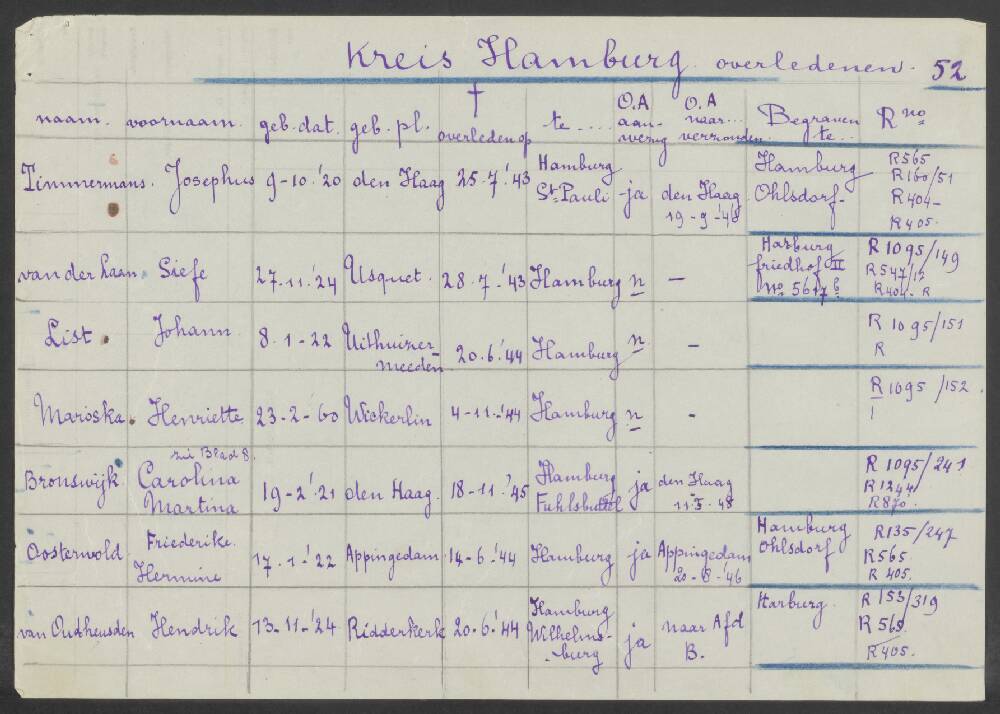 Kreis Hamburg. overledenen. 52
naam. voornaam. geb. dat. geb. pl. † overleden op te .... O.A aan-wezig O.A naar... verzonden. Begraven te... R no
Timmermans. Josephus 9-10-'20 den Haag 25-7-'43 Hamburg St. Pauli ja den Haag 19-9-'48 Hamburg Ohlsdorf- R565 R160/51 R404- R405.
van der Laan. Siefe 27-11-'24 Usquet. 28-7-'43 Hamburg n - Harburg friedhof II No 5617 b R1095/149 R547/12 R404-R
List. Johann 8-1-22 Uithuizer-meeden 20-6-'44 Hamburg n - R1095/151 R
Maroska. Henriette 23-2-'60 Wickerlin 4-11-'44 Hamburg n - R1095/152
zie Blad 8.
Bronswijk Carolina Martina 19-2-'21 den Haag. 18-11-'45 Hamburg Fuhlsbuttel ja den Haag 11-5-48 R1095/241 R1244 R870.
Oosterwold Friederike Hermine 17-1-'22 Appingedam 14-6-'44 Hamburg ja Appingedam 20-8-'46 Hamburg Ohlsdorf R135/247 R565. R405.
van Oudheusden Hendrik 13-11-'24 Ridderkerk 20-6-'44 Hamburg Wilhelms-burg ja naar Afd B. Harburg. R153/319 R565. R405.